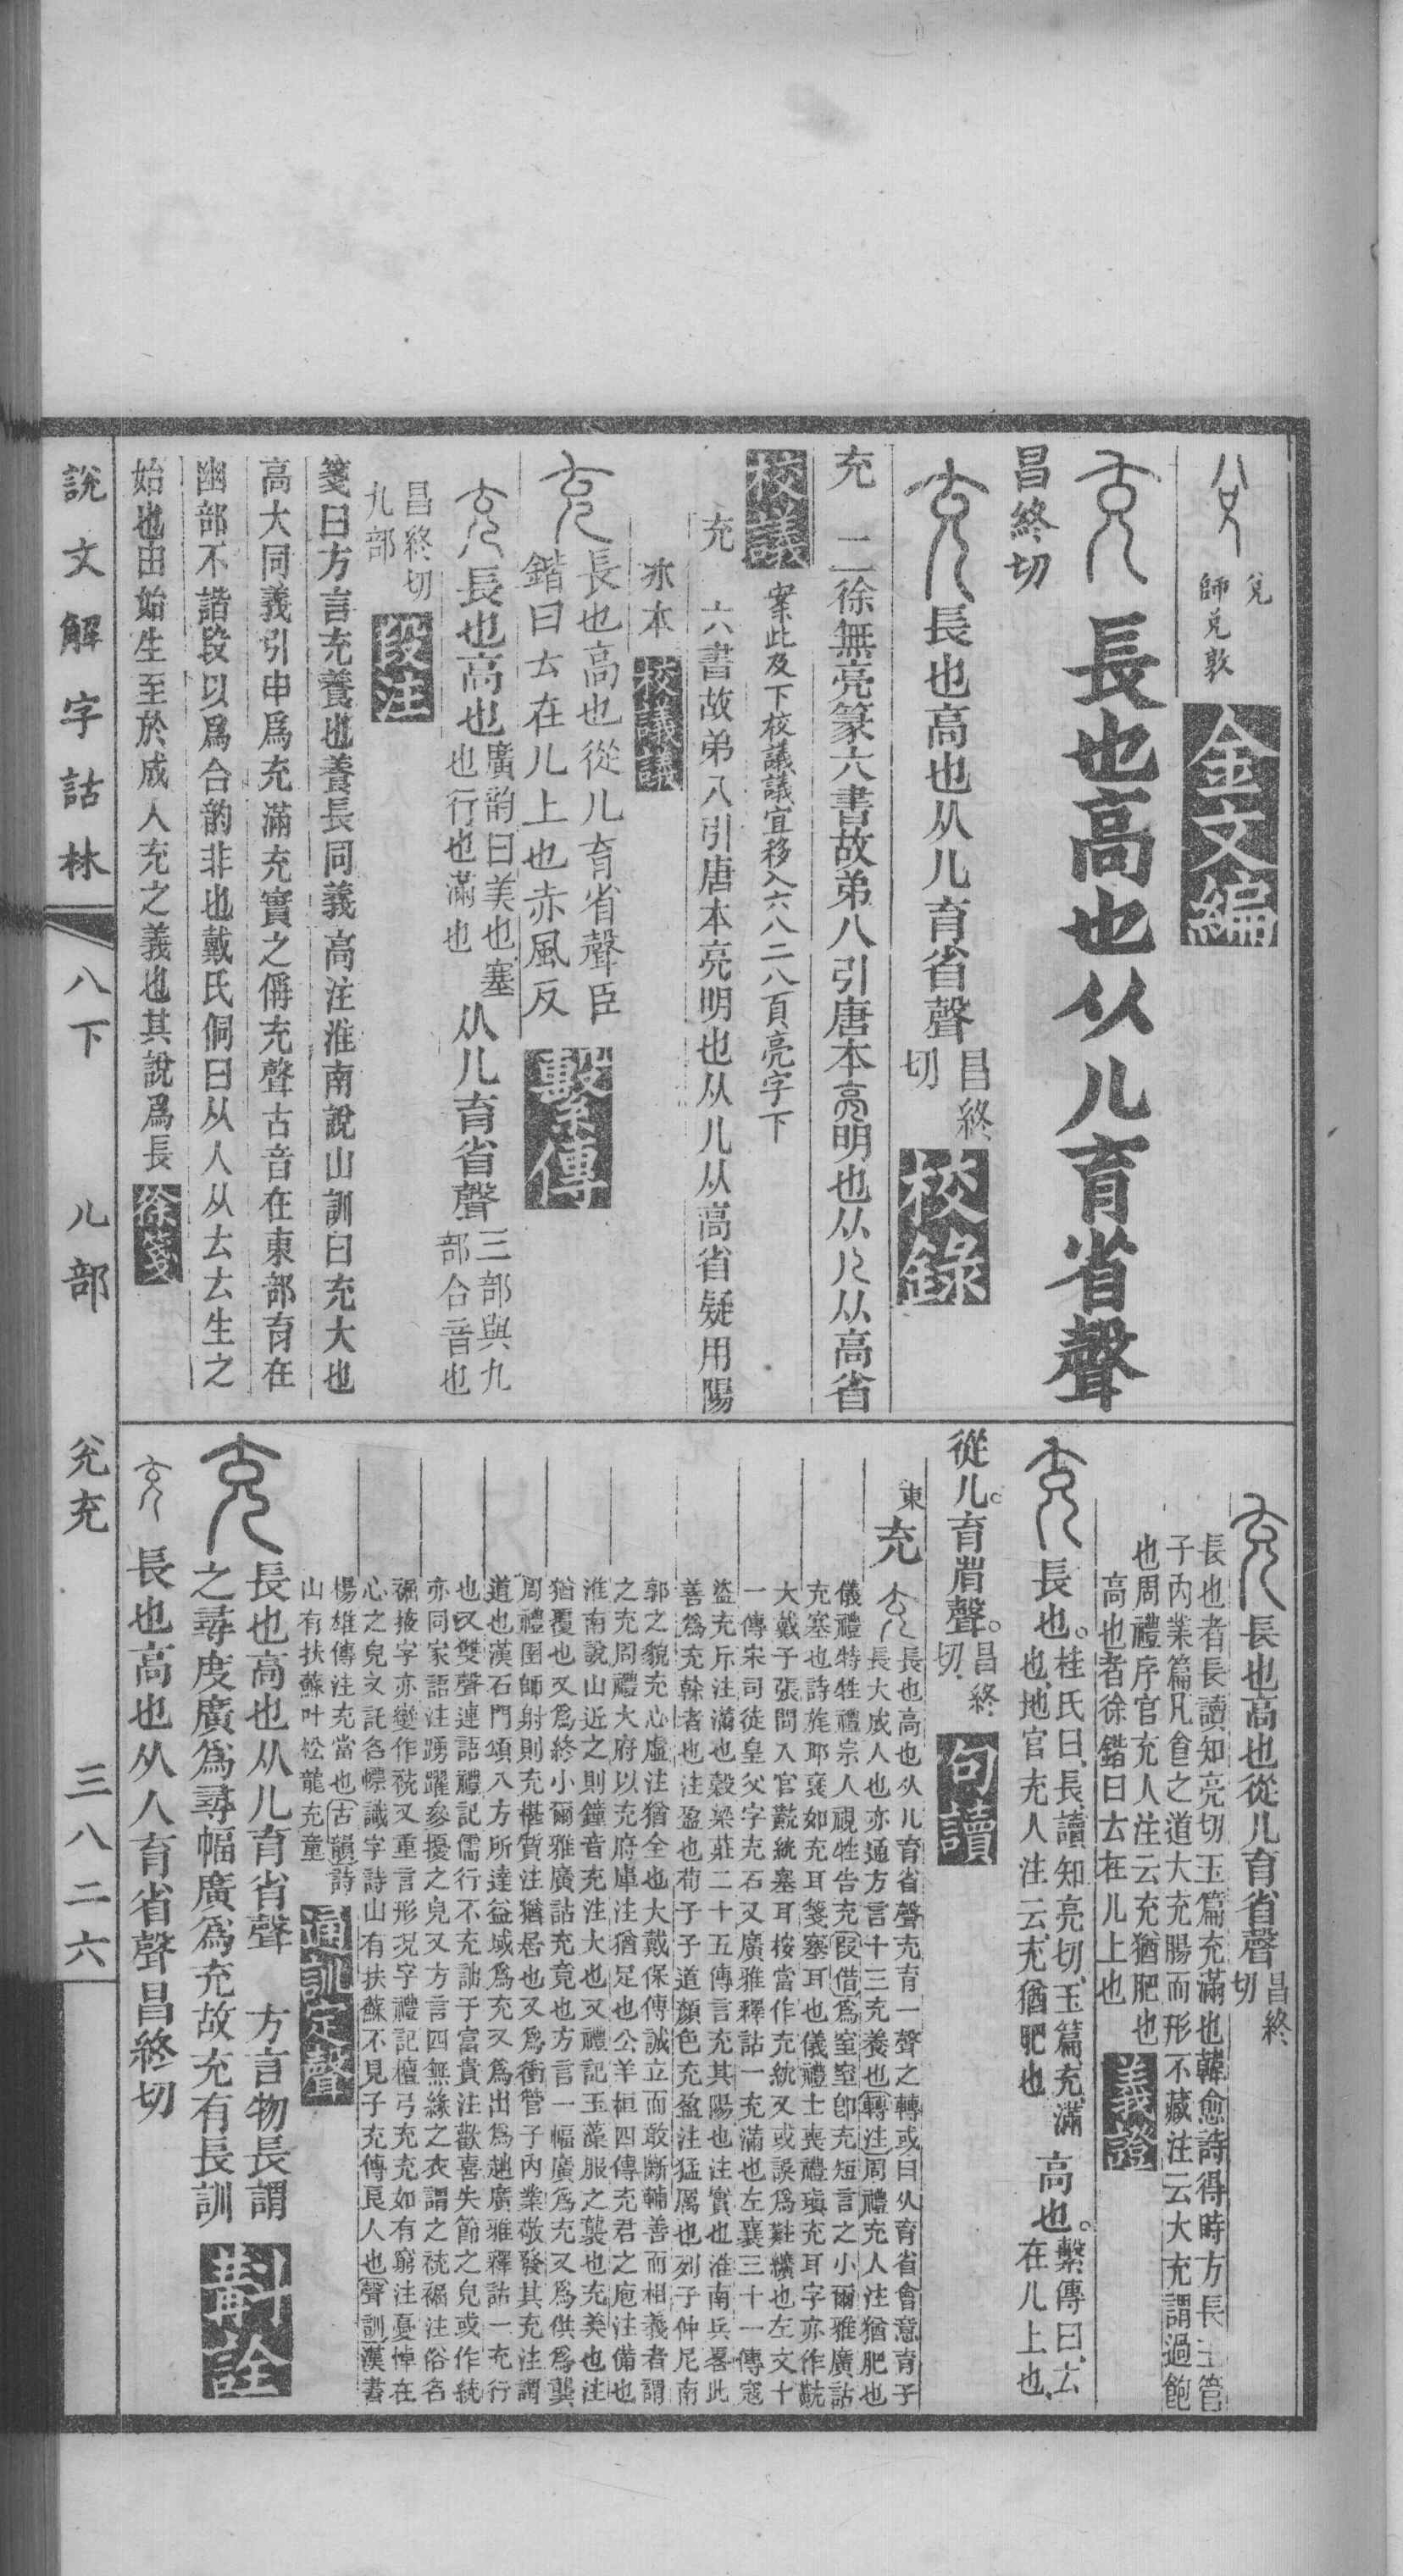 兌
師兌敦
金文編
長也高也从儿育省聲
昌終切
長也高也从儿育省聲
昌終
切
校錄
充 二徐無亮篆六書故弟八引唐本亮明也从儿从高省
校議
案此及下校議議宜移入六八二八頁亮字下
充 六書故弟八引唐本亮明也从儿从高省疑用陽
冰本
校議議
長也高也從儿育省聲臣
鍇曰𠫓在儿上也赤風反
繫傳
長也高也
廣韵曰美也塞
也行也滿也
从儿育省聲
三部與九
部合音也
昌終切
九部
段注
箋曰方言充養也養長同義高注淮南說山訓曰充大也
高大同義引申爲充滿充實之偁充聲古音在東部育在
幽部不諧段以爲合韵非也戴氏侗曰从人从𠫓𠫓生之
始也由始生至於成人充之義也其說爲長
徐箋
長也高也從儿育省聲
昌終
切
長也者長讀知亮切玉篇充滿也韓愈詩得時方長王管
子內業篇凡食之道大充腸而形不藏注云大充謂過飽
也周禮序官充人注云充猶肥也
高也者徐鍇曰𠫓在儿上也
義證
長也。
桂氏曰、長、讀知亮切、玉篇、充、滿
也、地官充人注云、充猶肥也、
高也。
繫傳曰、𠫓
在儿上也、
從儿。育省聲。
昌終
切、
句讀
東
充
長也高也从儿育省聲充育一聲之轉或曰从育省會意育子
長大成人也亦通方言十三充養也轉注周禮充人注猶肥也
儀禮特牲禮宗人視牲告充叚借爲窒窒卽充短言之小爾雅廣詁
充塞也詩旄邱褎如充耳箋塞耳也儀禮士喪禮瑱充耳字亦作黈
大戴子張問入官黈絖塞耳按當作充絖又或誤爲黈纊也左文十
一傳宋司徒皇父字充石又廣雅釋詁一充滿也左襄三十一傳寇
盜充斥注滿也穀梁莊二十五傳言充其陽也注實也淮南兵畧此
善爲充榦者也注盈也荀子子道顏色充盈注猛厲也列子仲尼南
郭之貌充心虛注猶全也大戴保傅誠立而敢斷輔善而相義者謂
之充周禮大府以充府庫注猶足也公羊桓四傳充君之庖注備也
淮南說山近之則鐘音充注大也又禮記玉藻服之襲也充美也注
猶覆也又爲終小爾雅廣詁充竟也方言一幅廣爲充又爲供爲龔
周禮圉師射則充椹質注猶居也又爲衝管子內業敬發其充注謂
道也漢石門頌八方所達益域爲充又爲出爲趟廣雅釋詁一充行
也又雙聲連語禮記儒行不充詘于富貴注歡喜失節之皃或作統
亦同家語注踴躍參擾之皃又方言四無緣之衣謂之䘪裾注俗名
裾掖字亦變作䘪又重言形況字禮記檀弓充充如有窮注憂悼在
心之皃又託名幖識字詩山有扶蘇不見子充傳良人也聲訓漢書
楊雄傳注充當也古韻詩
山有扶蘇叶松龍充童
通訓定聲
長也高也从儿育省聲 方言物長謂
之尋度廣爲尋幅廣爲充故充有長訓
斠詮
長也高也从人育省聲昌終切
說文解字詁林
八下
儿部
兊充
三八二六